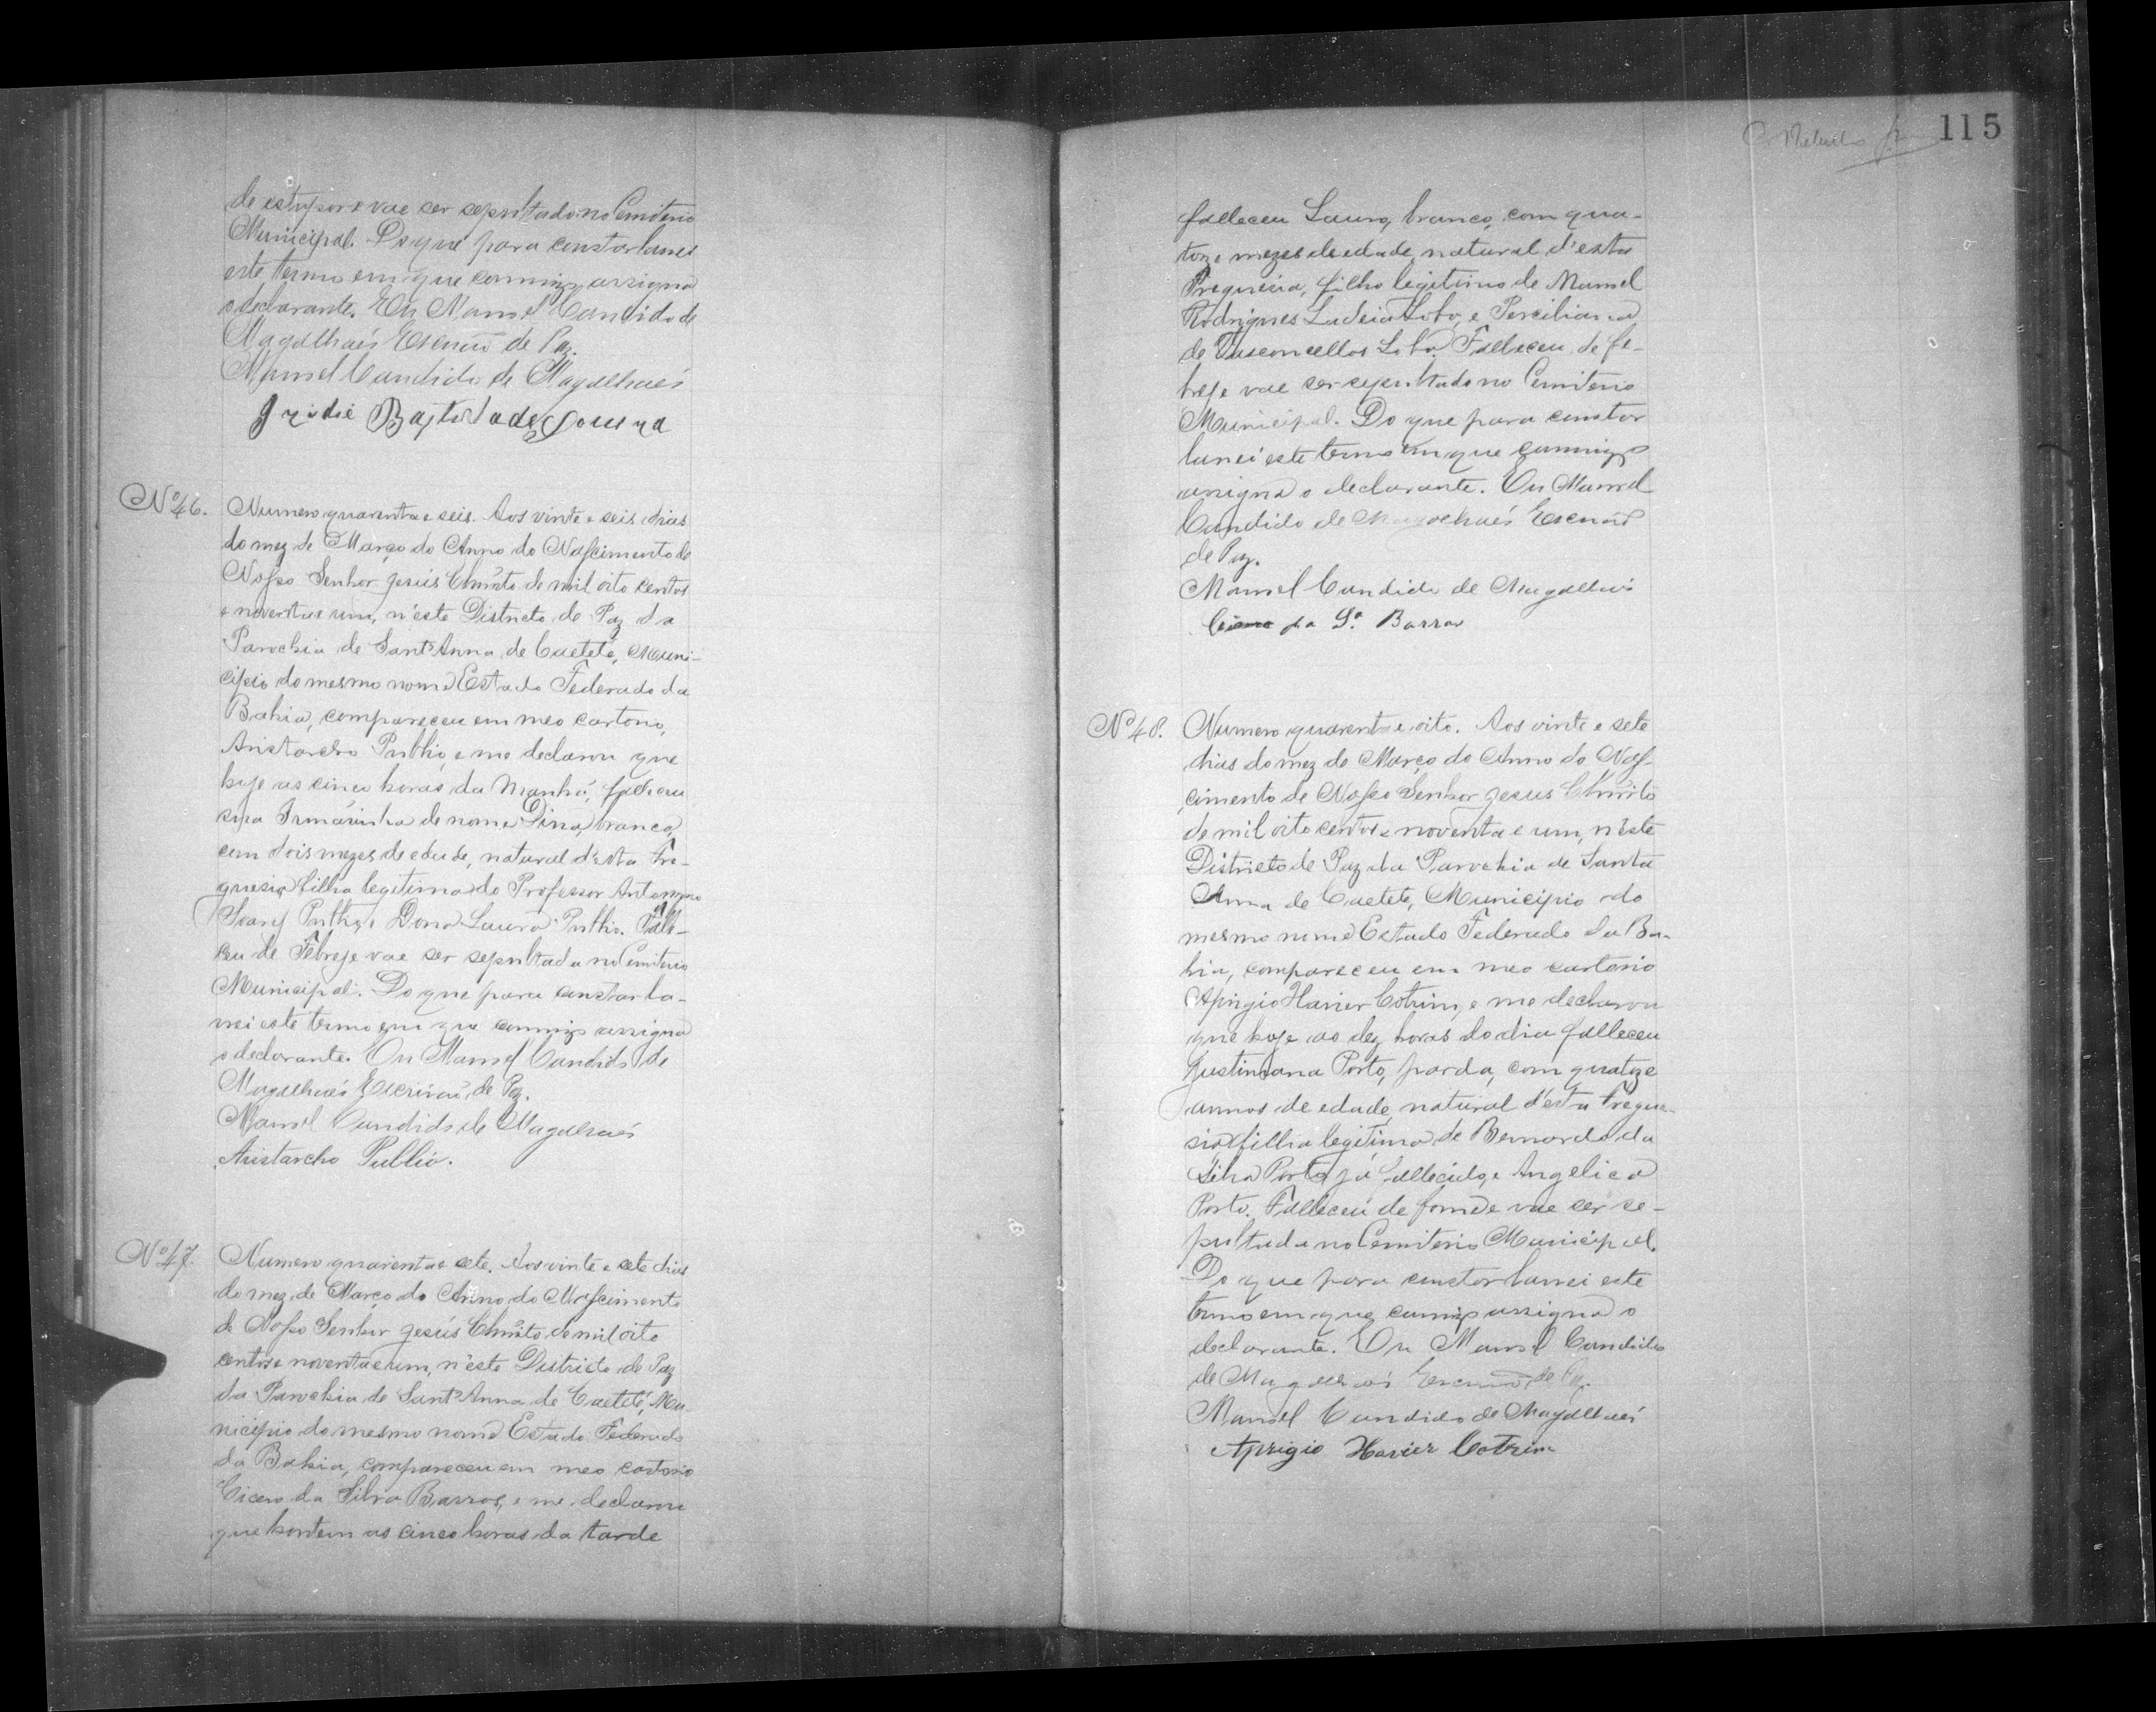 de estupor e vae ser sepultado no Cemiterio
Municipal. Do que para constar lancei
este termo em que commigo assigna
o declarante. Eu Manoel Candido de
Magalhaẽs Escrivaõ de Paz.
Manoel Candido de Magalhaẽs
Baptista de Souza
Nº 46.
Numero quarenta e seis. Aos vinte e seis dias
do mez de Março do Anno do Nascimento de
Nosso Senhor Jesús Christo de mil oito centos
e noventa e um, n'este Districto de Paz da
Parochia de Sant'Anna de Caeteté, Muni-
cipio do mesmo nome Estado Federado da
Bahia, compareceu em meo cartorio,
Aristarcho Publio, e me declarou que
hoje as cinco horas da manhã, falleceu
sua Irmãzinha de nome Dina, branca,
com dois mezes de edade, natural d'esta Fre-
guesia, filha legitima do Professor Antonino
Publio, e Dona Laura Publio. Falle-
ceu de Febre, e vae ser sepultada no Cemiterio
Municipal. Do que para constar la-
vrei este termo em que commigo assigna
o declarante. Eu Manoel Candido de
Magalhaẽs Escrivaõ de Paz.
Manoel Candido de Magalhaẽs
Aristarcho Publio.
Nº 47.
Numero quarenta e sete. Aos vinte e sete dias
do mez de Março do Anno do Nascimento
de Nosso Senhor Jesús Christo de mil oito
centos e noventa e um, n'este Districto de Paz
da Parochia de Sant'Anna de Caeteté, Mu-
nicipio do mesmo nome Estado Federado
da Bahia, compareceu em meo cartorio
Cicero da Silva Barros, e me declarou
que hontem as cinco horas da tarde
115
falleceu Lauro, branco, com qua-
torze mezes de edade, natural d'esta
Freguesia, filho legitimo de Manoel
Rodrigues Ladeia Lobo, e Perciliana
de Vasconcellos Lobo. Falleceu de fe-
bre, e vae ser sepultado no Cemiterio
Municipal. Do que para constar
lancei este termo em que commigo
assigna o declarante. Eu Manoel
Candido de Magalhaẽs Escrivaõ
de Paz.
Manoel Candido de Magalhaẽs
Cicero da Sª Barros
Nº 48.
Numero quarenta e oito. Aos vinte e sete
dias do mez de Março do Anno do Nas-
cimento de Nosso Senhor Jesus Christo
de mil oito centos e noventa e um, n'este
Districto de Paz da Parochia de Santa
Anna de Caeteté, Municipio do
mesmo nome Estado Federado da Ba-
hia, compareceu em meo cartorio
Aprigio Xavier Cotrim, e me declarou
que hoje as dez horas do dia falleceu
Justiniana Porto, parda, com quatorze
annos de edade, natural d'esta Fregue-
sia, filha legitima de Bernardo da
Silva Porto, já fallecido, e Angelica
Porto. Falleceu de fome, e vae ser se-
pultada no Cemiterio Municipal.
Do que para constar lancei este
termo em que commigo assigna o
declarante. Eu Manoel Candido
de Magalhaẽs Escrivaõ de Paz.
Manoel Candido de Magalhaẽs
Aprigio Xavier Cotrim